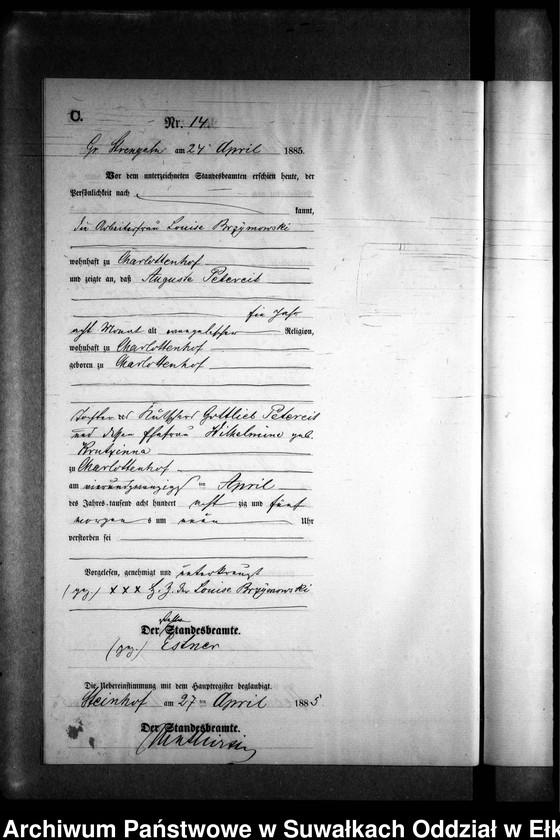 C.
Nr. 14.
Gr. Strengeln am 24 April 1885.
Vor dem unterzeichneten Standesbeamten erschien heute, der
Persönlichkeit nach
kannt,
die Arbeiterfrau Louise Brzymowski
wohnhaft zu Charlottenhof
und zeigte an, daß Auguste Petereit
ein Jahr
acht Monat alt evangelischer Religion,
wohnhaft zu Charlottenhof
geboren zu Charlottenhof
Tochter des Gottlieb Petereit
und dessen Ehefrau Wilhelmine geb.
Krutzinna
zu Charlottenhof
am vierundzwanzigsten April
des Jahres tausend acht hundert acht zig und fünf
morgens um neun Uhr
verstorben sei
Vorgelesen, genehmigt und unterkreuzt
(gez.) XXX H. Z. der Louise Brzymowski
Der Standesbeamte.
(gez.) Estner
Die Uebereinstimmung mit dem Hauptregister beglaubigt.
Steinhof am 27 ten April 1885
Der Standesbeamte.
Archiwum Państwowe w Suwałkach Oddział w Ełk